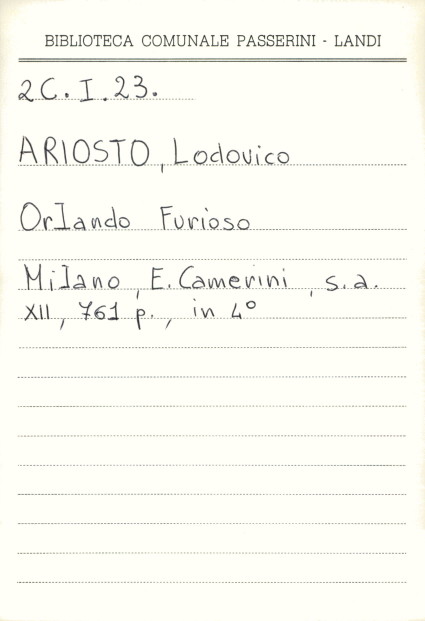 BIBLIOTECA COMUNALE PASSERINI - LANDI
2C.I.23.
ARIOSTO, Lodovico
Orlando Furioso
Milano, E. Camerini, s.a.
XII, 761 p., in 4°